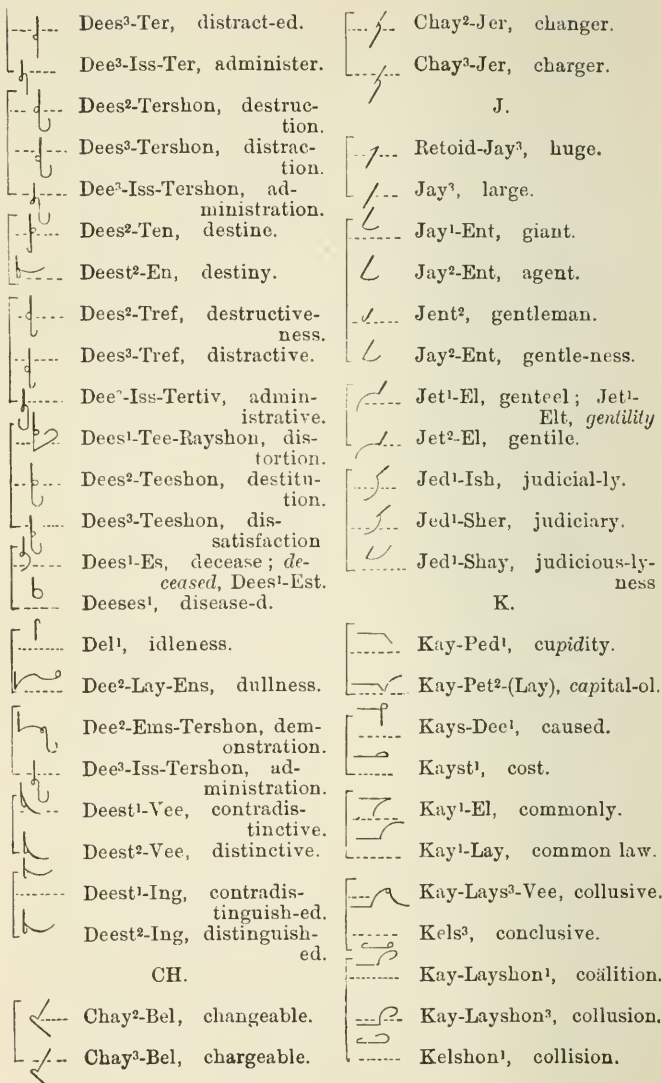 Dees³-Ter, distract-ed.
Dee³-Iss-Ter, administer.
Dees²-Tershon, destruc-
tion.
Dees³-Tershon, distrac-
tion.
Dee³-Iss-Tershon, ad-
ministration.
Dees²-Ten, destine.
Deest²-En, destiny.
Dees²-Tref, destructive-
ness.
Dees³-Tref, distractive.
Dee³-Iss-Tertiv, admin-
istrative.
Dees¹-Tee-Rayshon, dis-
tortion.
Dees²-Teeshon, destitu-
tion.
Dees³-Teeshon, dis-
satisfaction
Dees¹-Es, decease; de-
ceased, Dees¹-Est.
Deeses¹, disease-d.
Del¹, idleness.
Dee²-Lay-Ens, dullness.
Dee²-Ems-Tershon, dem-
onstration.
Dee³-Iss-Tershon, ad-
ministration.
Deest¹-Vee, contradis-
tinctive.
Deest²-Vee, distinctive.
Deest¹-Ing, contradis-
tinguish-ed.
Deest²-Ing, distinguish-
ed.
CH.
Chay²-Bel, changeable.
Chay³-Bel, chargeable.
Chay²-Jer, changer.
Chay³-Jer, charger.
J.
Retoid-Jay³, huge.
Jay³, large.
Jay¹-Ent, giant.
Jay²-Ent, agent.
Jent², gentleman.
Jay²-Ent, gentle-ness.
Jet¹-El, genteel; Jet¹-
Elt, gentility
Jet²-El, gentile.
Jed¹-Ish, judicial-ly.
Jed¹-Sher, judiciary.
Jed¹-Shay, judicious-ly-
ness
K.
Kay-Ped¹, cupidity.
Kay-Pet²-(Lay), capital-ol.
Kays-Dee¹, caused.
Kayst¹, cost.
Kay¹-El, commonly.
Kay¹-Lay, common law.
Kay-Lays³-Vee, collusive.
Kels³, conclusive.
Kay-Layshon¹, coälition.
Kay-Layshon³, collusion.
Kelshon¹, collision.